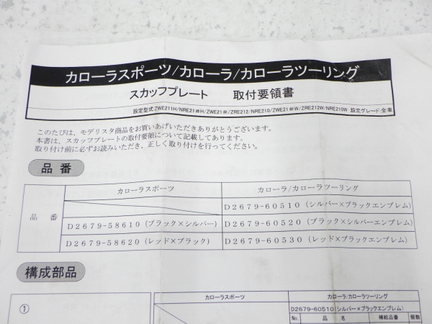 カローラスポーツ/カローラ/カローラツーリング
スカッフプレート　取付要領書
設定型式 ZWE211H/NRE21#H/ZWE21#/ZRE212/NRE210/ZWE21#W/ZRE212W/NRE210W 設定グレード 全車
このたびは、モデリスタ商品をお買いあげいただきありがとうございます。
本書は、スカッフプレートの取付要領について記載してあります。
取り付け前に必ずお読みいただき、正しく取り付けを行ってください。
品番
カローラスポーツ カローラ/カローラツーリング
品番 D2679-60510（シルバー×ブラックエンブレム）
D2679-58610（ブラック×シルバー） D2679-60520（ブラック×シルバーエンブレム）
D2679-58620（レッド×ブラック） D2679-60530（レッド×ブラックエンブレム）
構成部品
① カローラスポーツ カローラ/カローラツーリング
D2679-60510（シルバー×ブラックエンブレム）
No. 品名 補給品番 個数